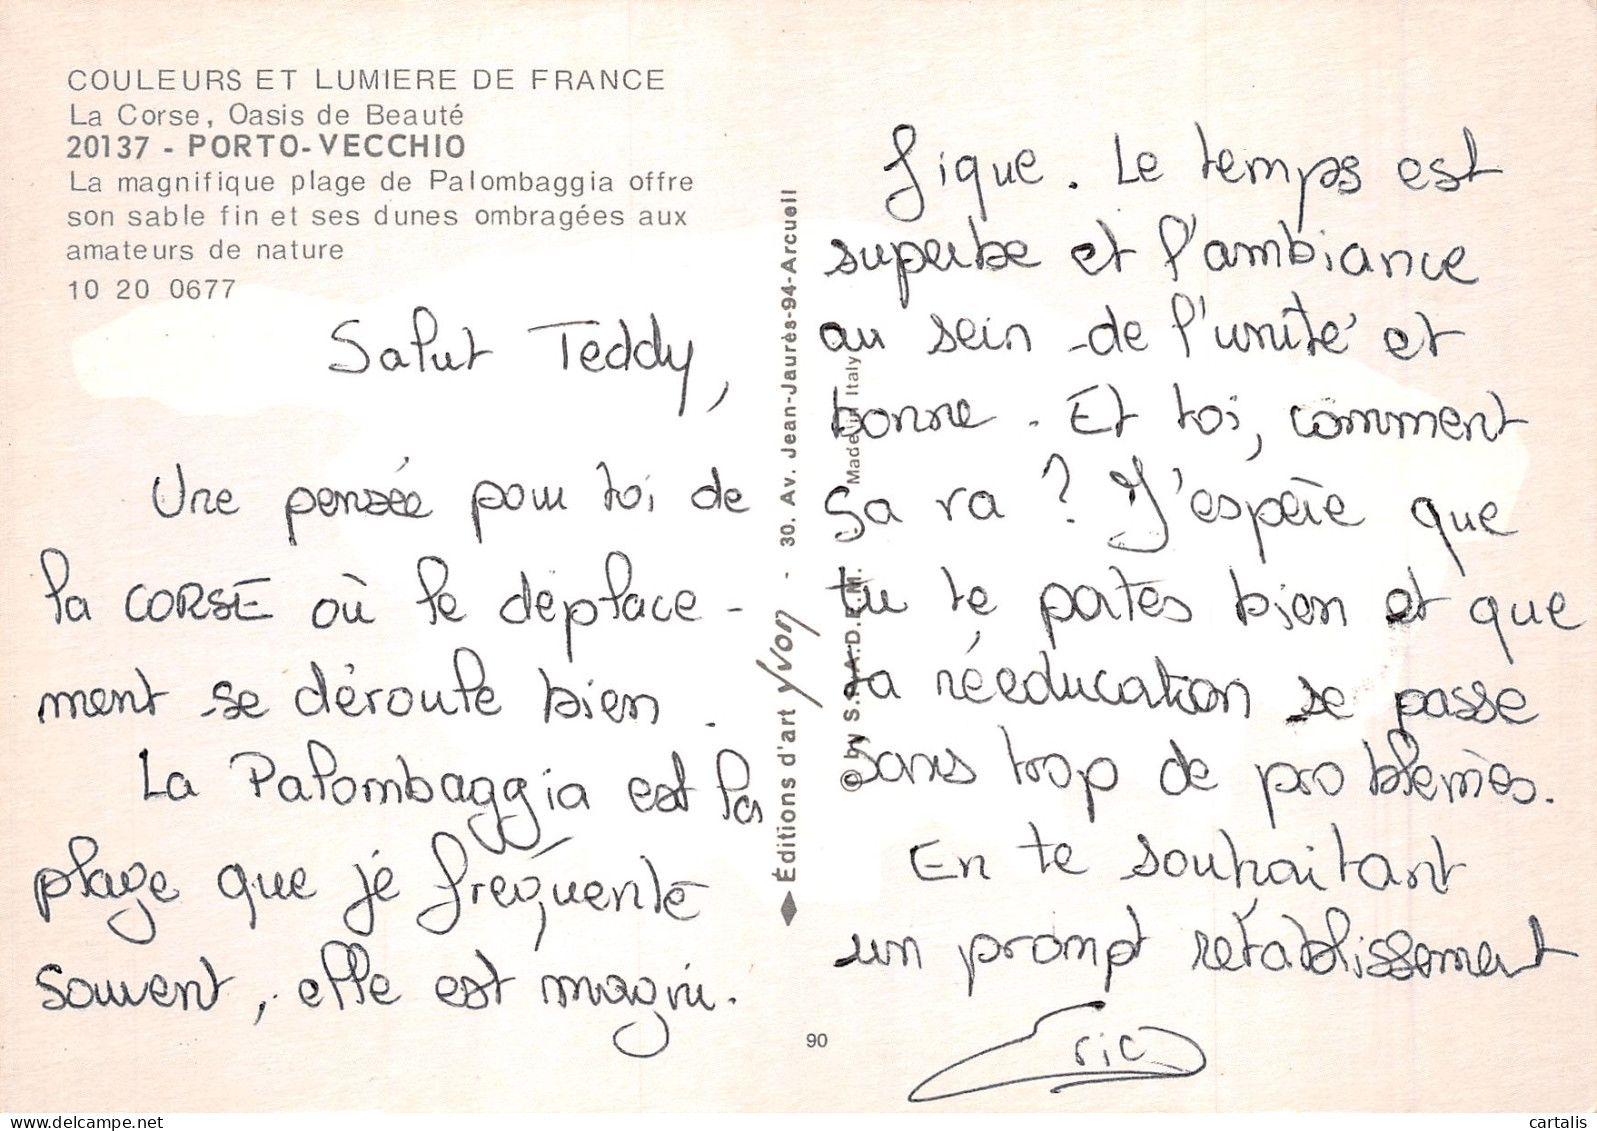 COULEURS ET LUMIERE DE FRANCE
La Corse, Oasis de Beauté
20137 - PORTO-VECCHIO
La magnifique plage de Palombaggia offre
son sable fin et ses dunes ombragées aux
amateurs de nature
10 20 0677
Salut Teddy,
Une pensée pour toi de
la CORSE où le déplace-
ment se déroule bien.
La Palombaggia est la
plage que je fréquente
souvent, elle est magni-
Éditions d'art Yvon - 30. Av. Jean-Jaurès-94-Arcueil
© by S.P.A.D.E.M. Made in Italy
90
fique. Le temps est
superbe et l'ambiance
au sein de l'unité et
bonne. Et toi, comment
ça va ? J'espère que
tu te portes bien et que
ta rééducation se passe
sans trop de problèmes.
En te souhaitant
un prompt rétablissement
Eric
cartalis